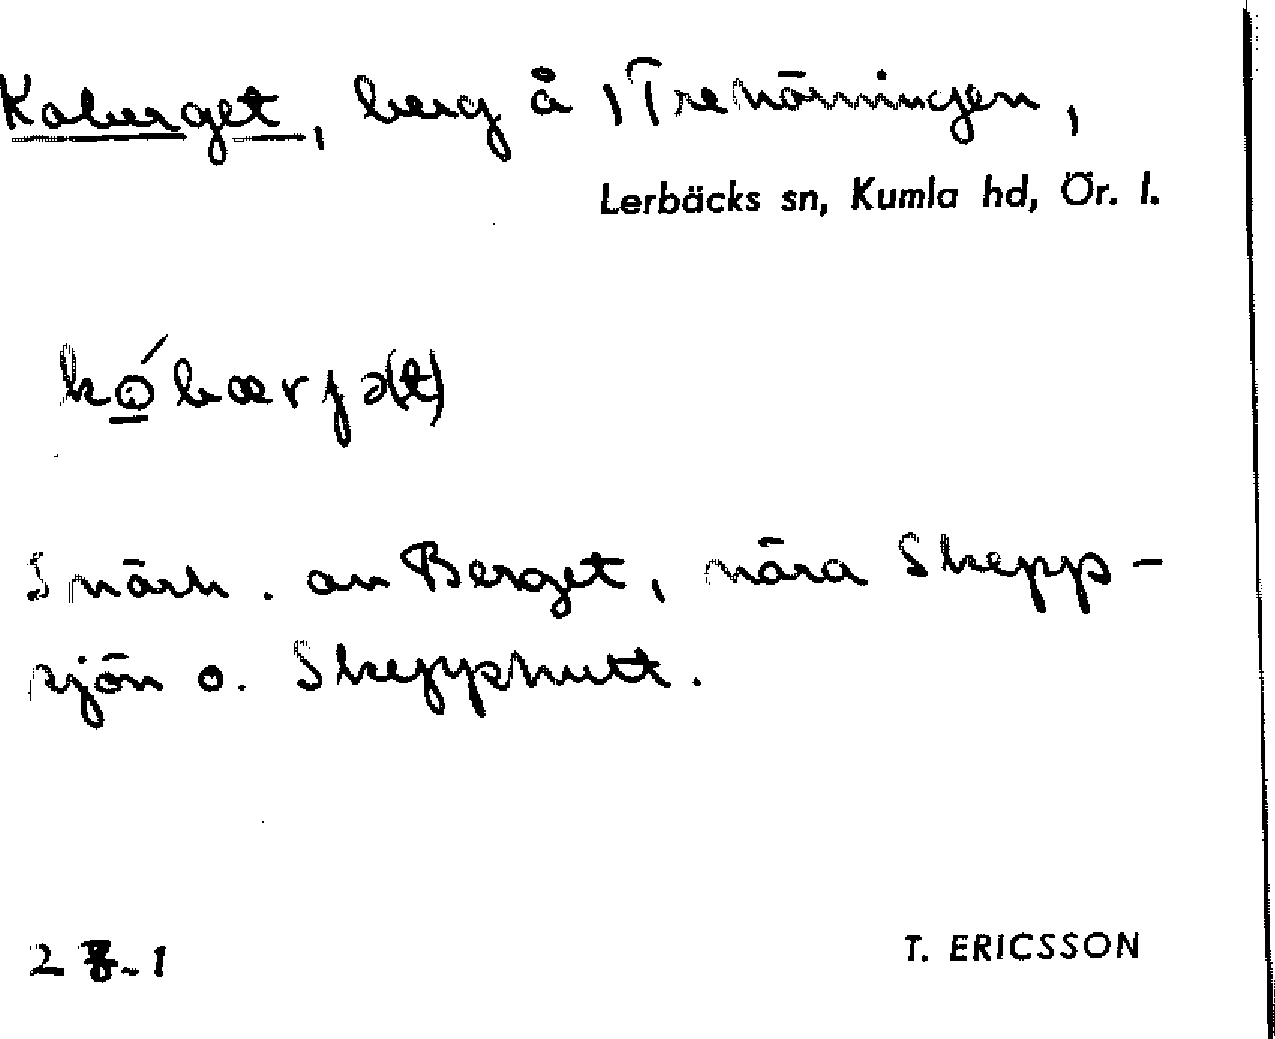 Koberget, berg å 1 Trehörningen,
Lerbäcks sn, Kumla hd, Ör. l.
kó̲bærjə(t)
I närh. av Berget, nära Skepp-
sjön o. Skepphutt.
T. ERICSSON